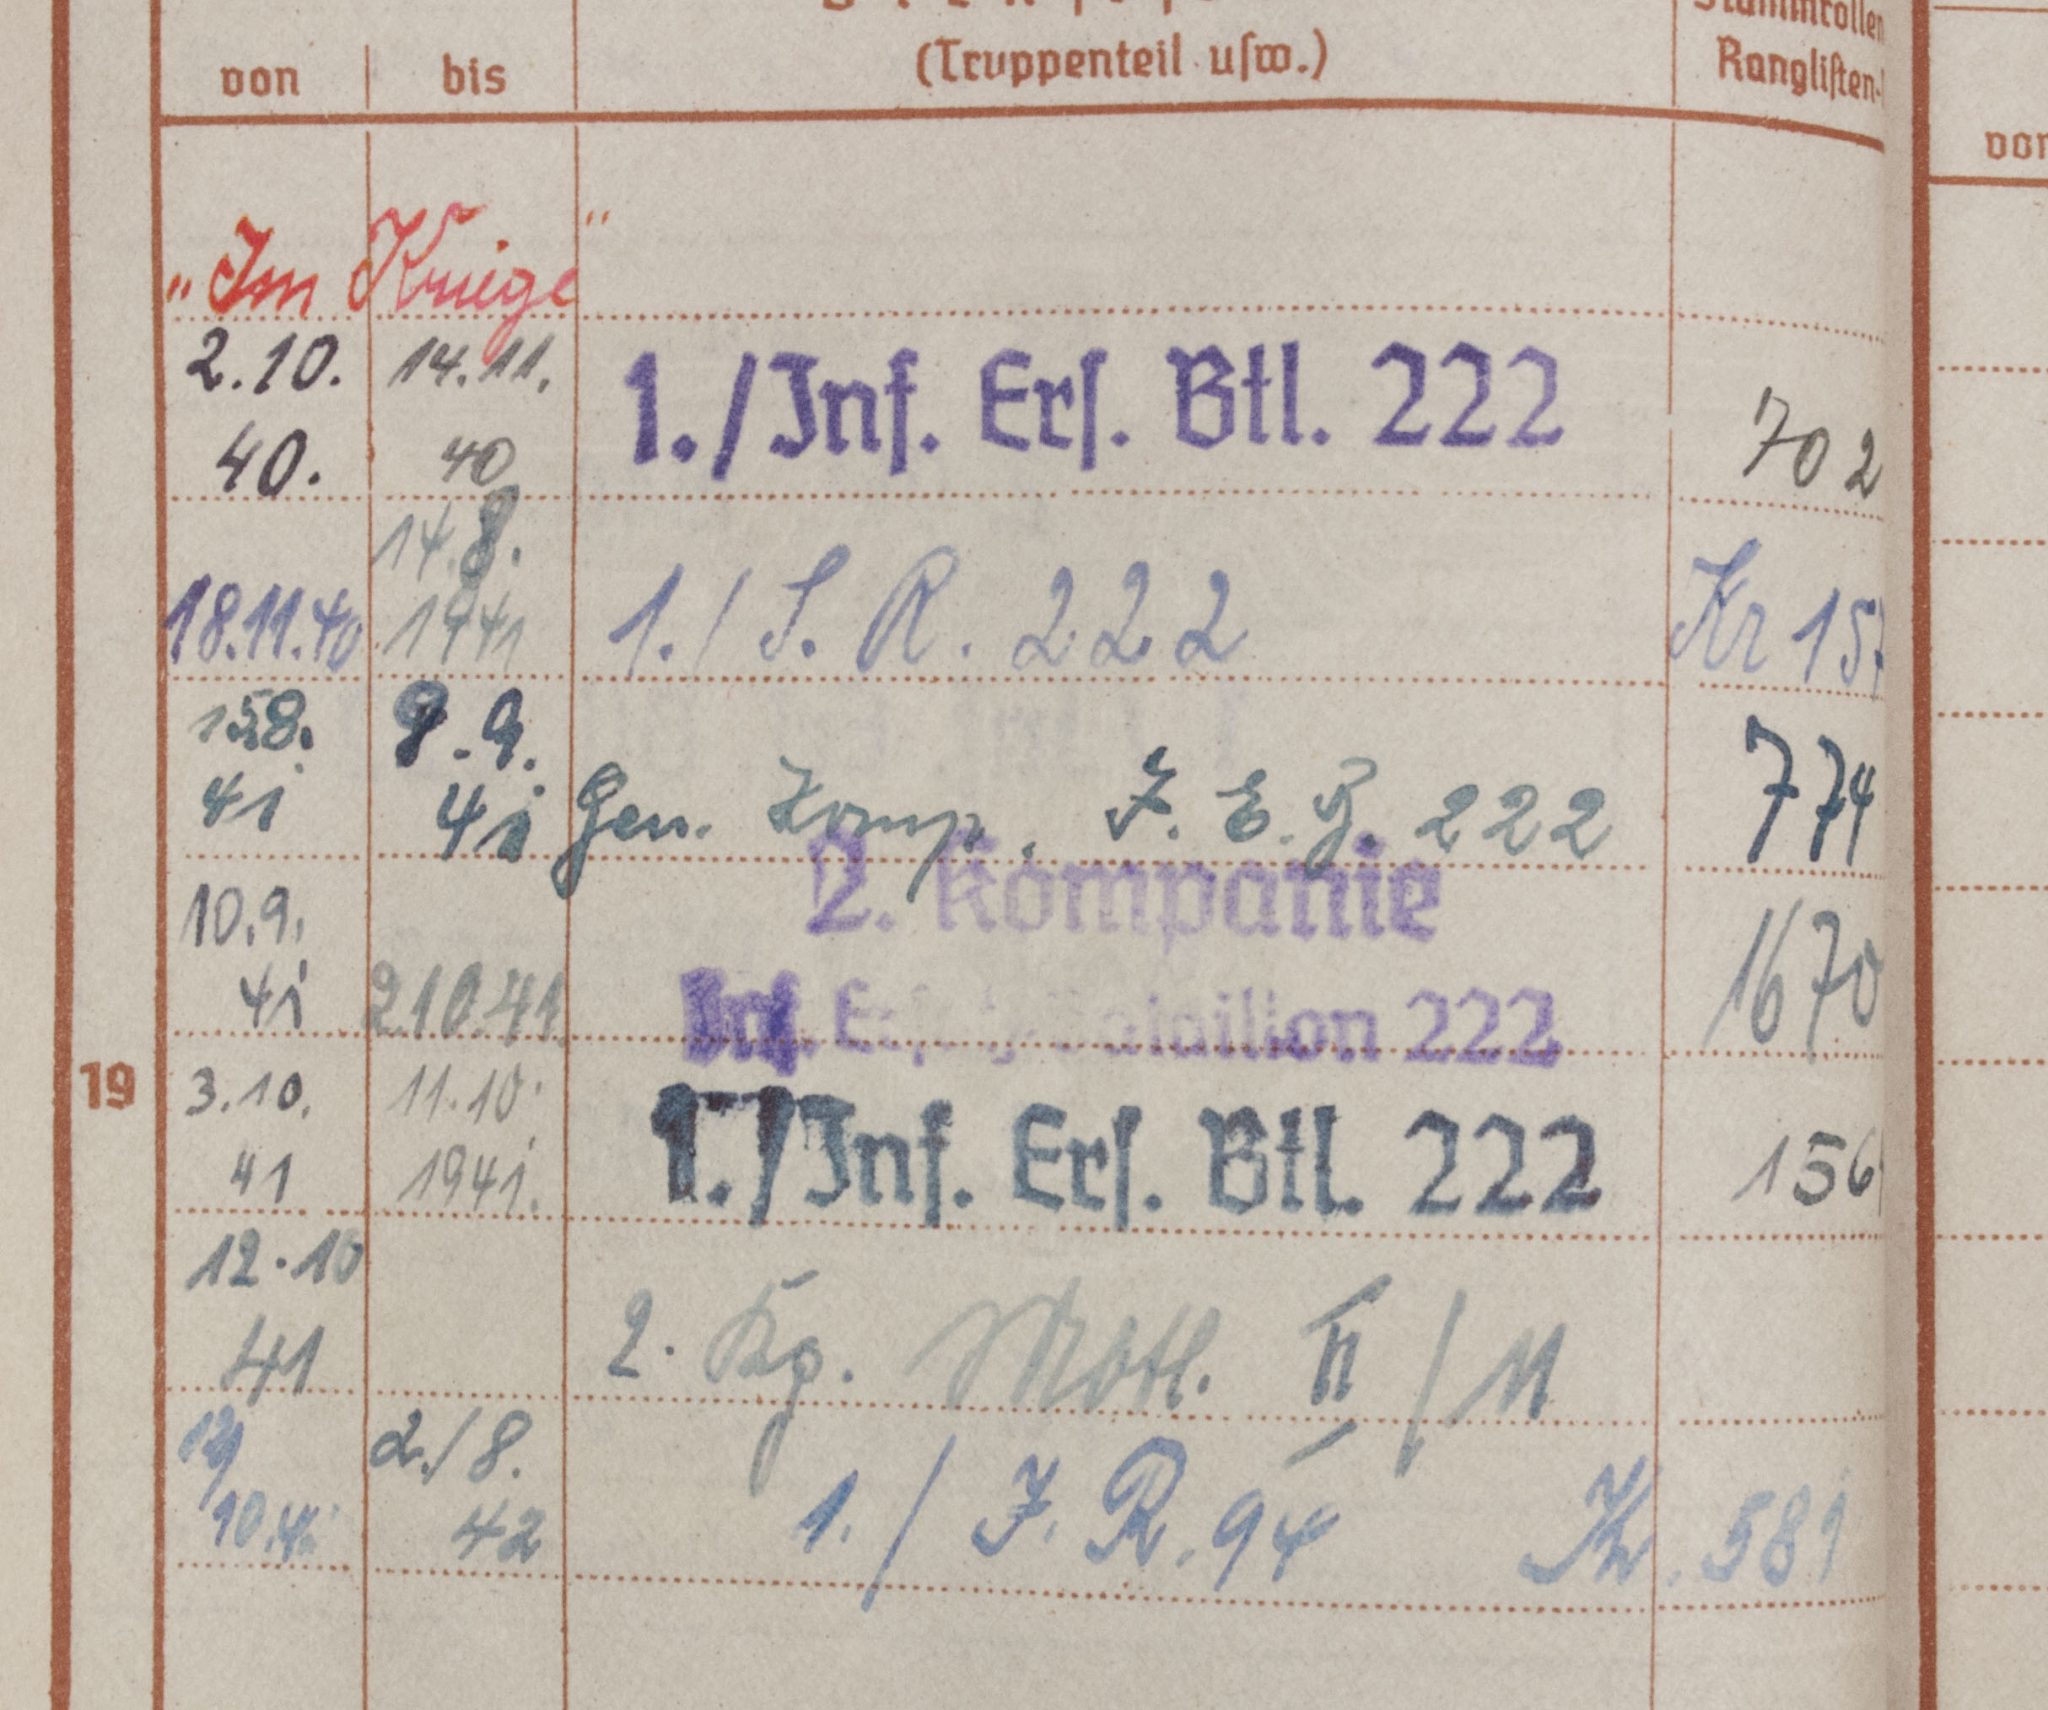 von bis (Truppenteil uſw.) Rangliſten-
von
„Im Kriege"
2.10. 14.11. 1./Inf. Erſ. Btl. 222
40. 40 702
14.8.
18.11.40 1941 1./ I. R. 222 Kr 157
15.8. 8.9.
41 41 Gen. Komp. I. E. B. 222 774
2. Kompanie
10.9.
41 2.10.41. Inf. Erſatz-Bataillon 222 1670
19 3.10. 11.10. 1./Inf. Erſ. Btl. 222
41 1941. 156
12.10
41 2. Kp. Marſchbtl. II / 11
12/ 2./8.
10.41 42 1./ I. R. 94 Kr. 581